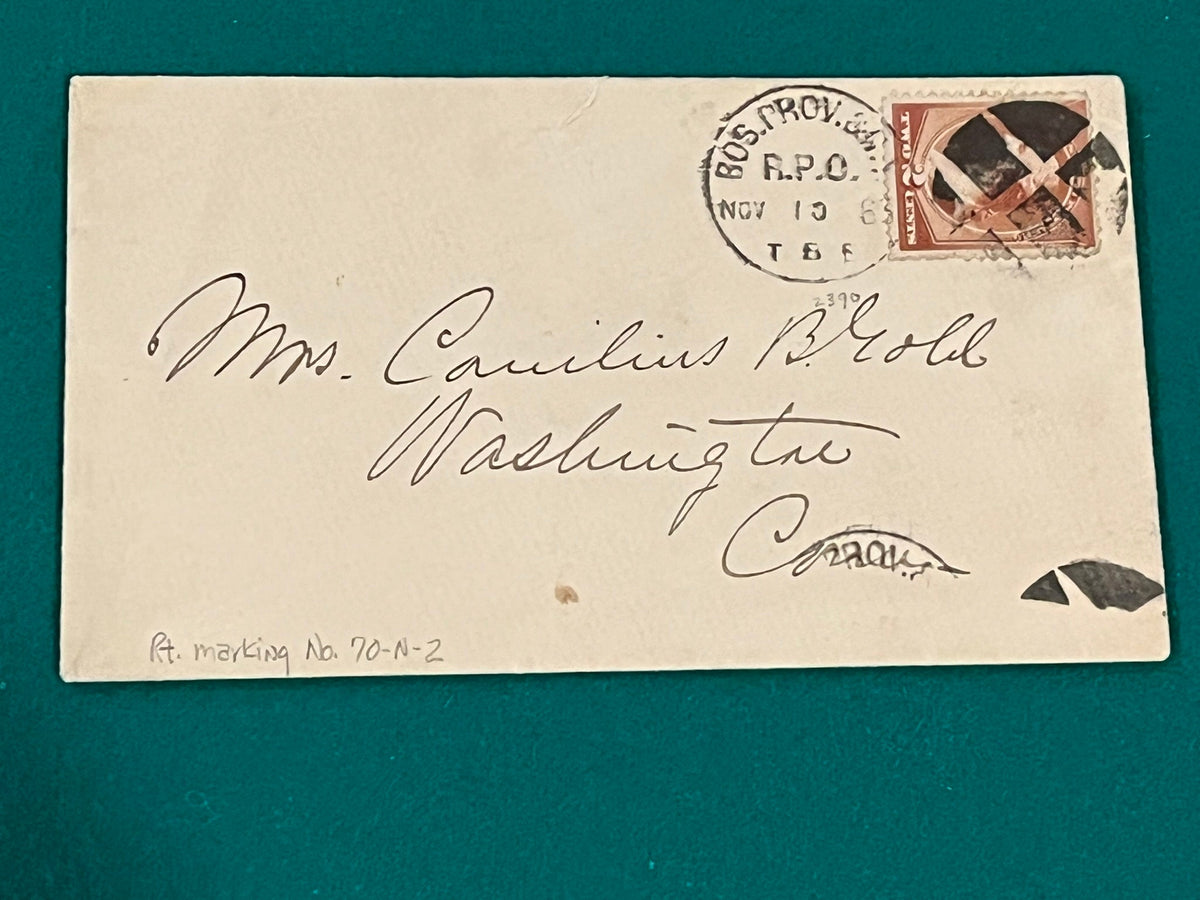 BOS. PROV. &
R.P.O.
NOV 10
T B
TWO 2 CENTS
2390
Mrs. Cornilius B.
Washington
Conn
Rt. marking No. 70-N-2